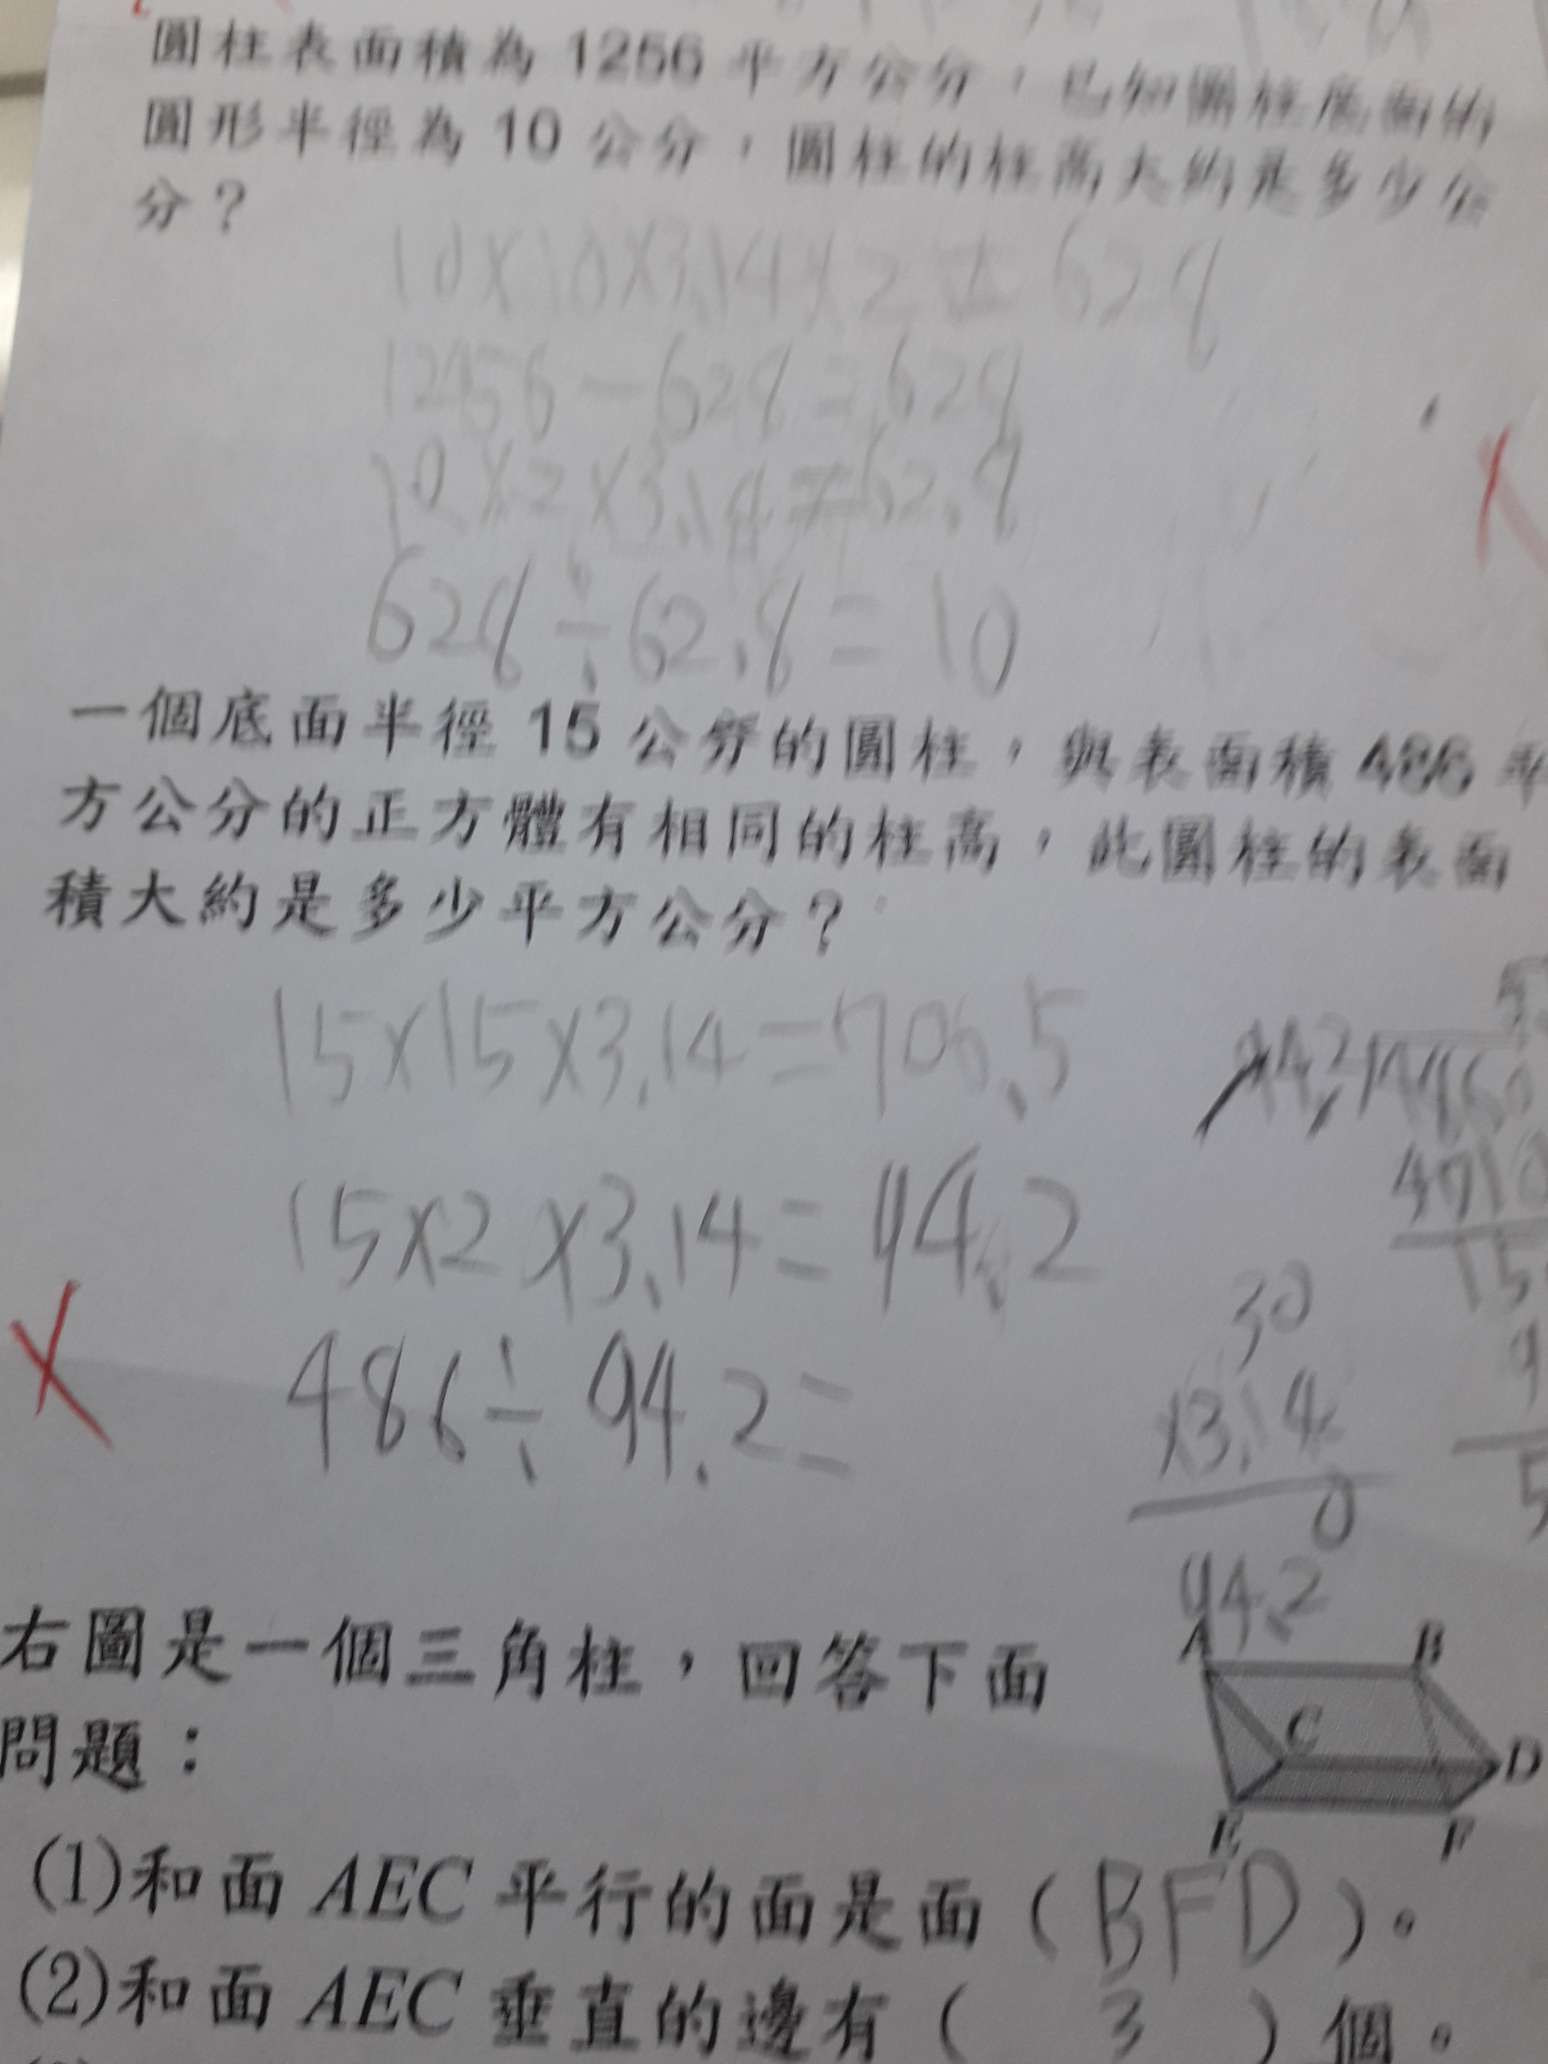 圓柱表面積為 1256 平方公分，已知圓柱底面的
圓形半徑為 10 公分，圓柱的柱高大約是多少公
分？
10×10×3.14×2=628
1256-628=628
10×2×3.14=62.8
628÷62.8=10
一個底面半徑 15 公分的圓柱，與表面積 486 平
方公分的正方體有相同的柱高，此圓柱的表面
積大約是多少平方公分？
15×15×3.14=706.5
15×2×3.14=94.2
486÷94.2=
94.2
4860
4710
15
30
×3.14
0
94.2
9
5
右圖是一個三角柱，回答下面
問題：
A
B
C
D
E
F
(1)和面 AEC 平行的面是面（BFD）。
(2)和面 AEC 垂直的邊有（ 3 ）個。